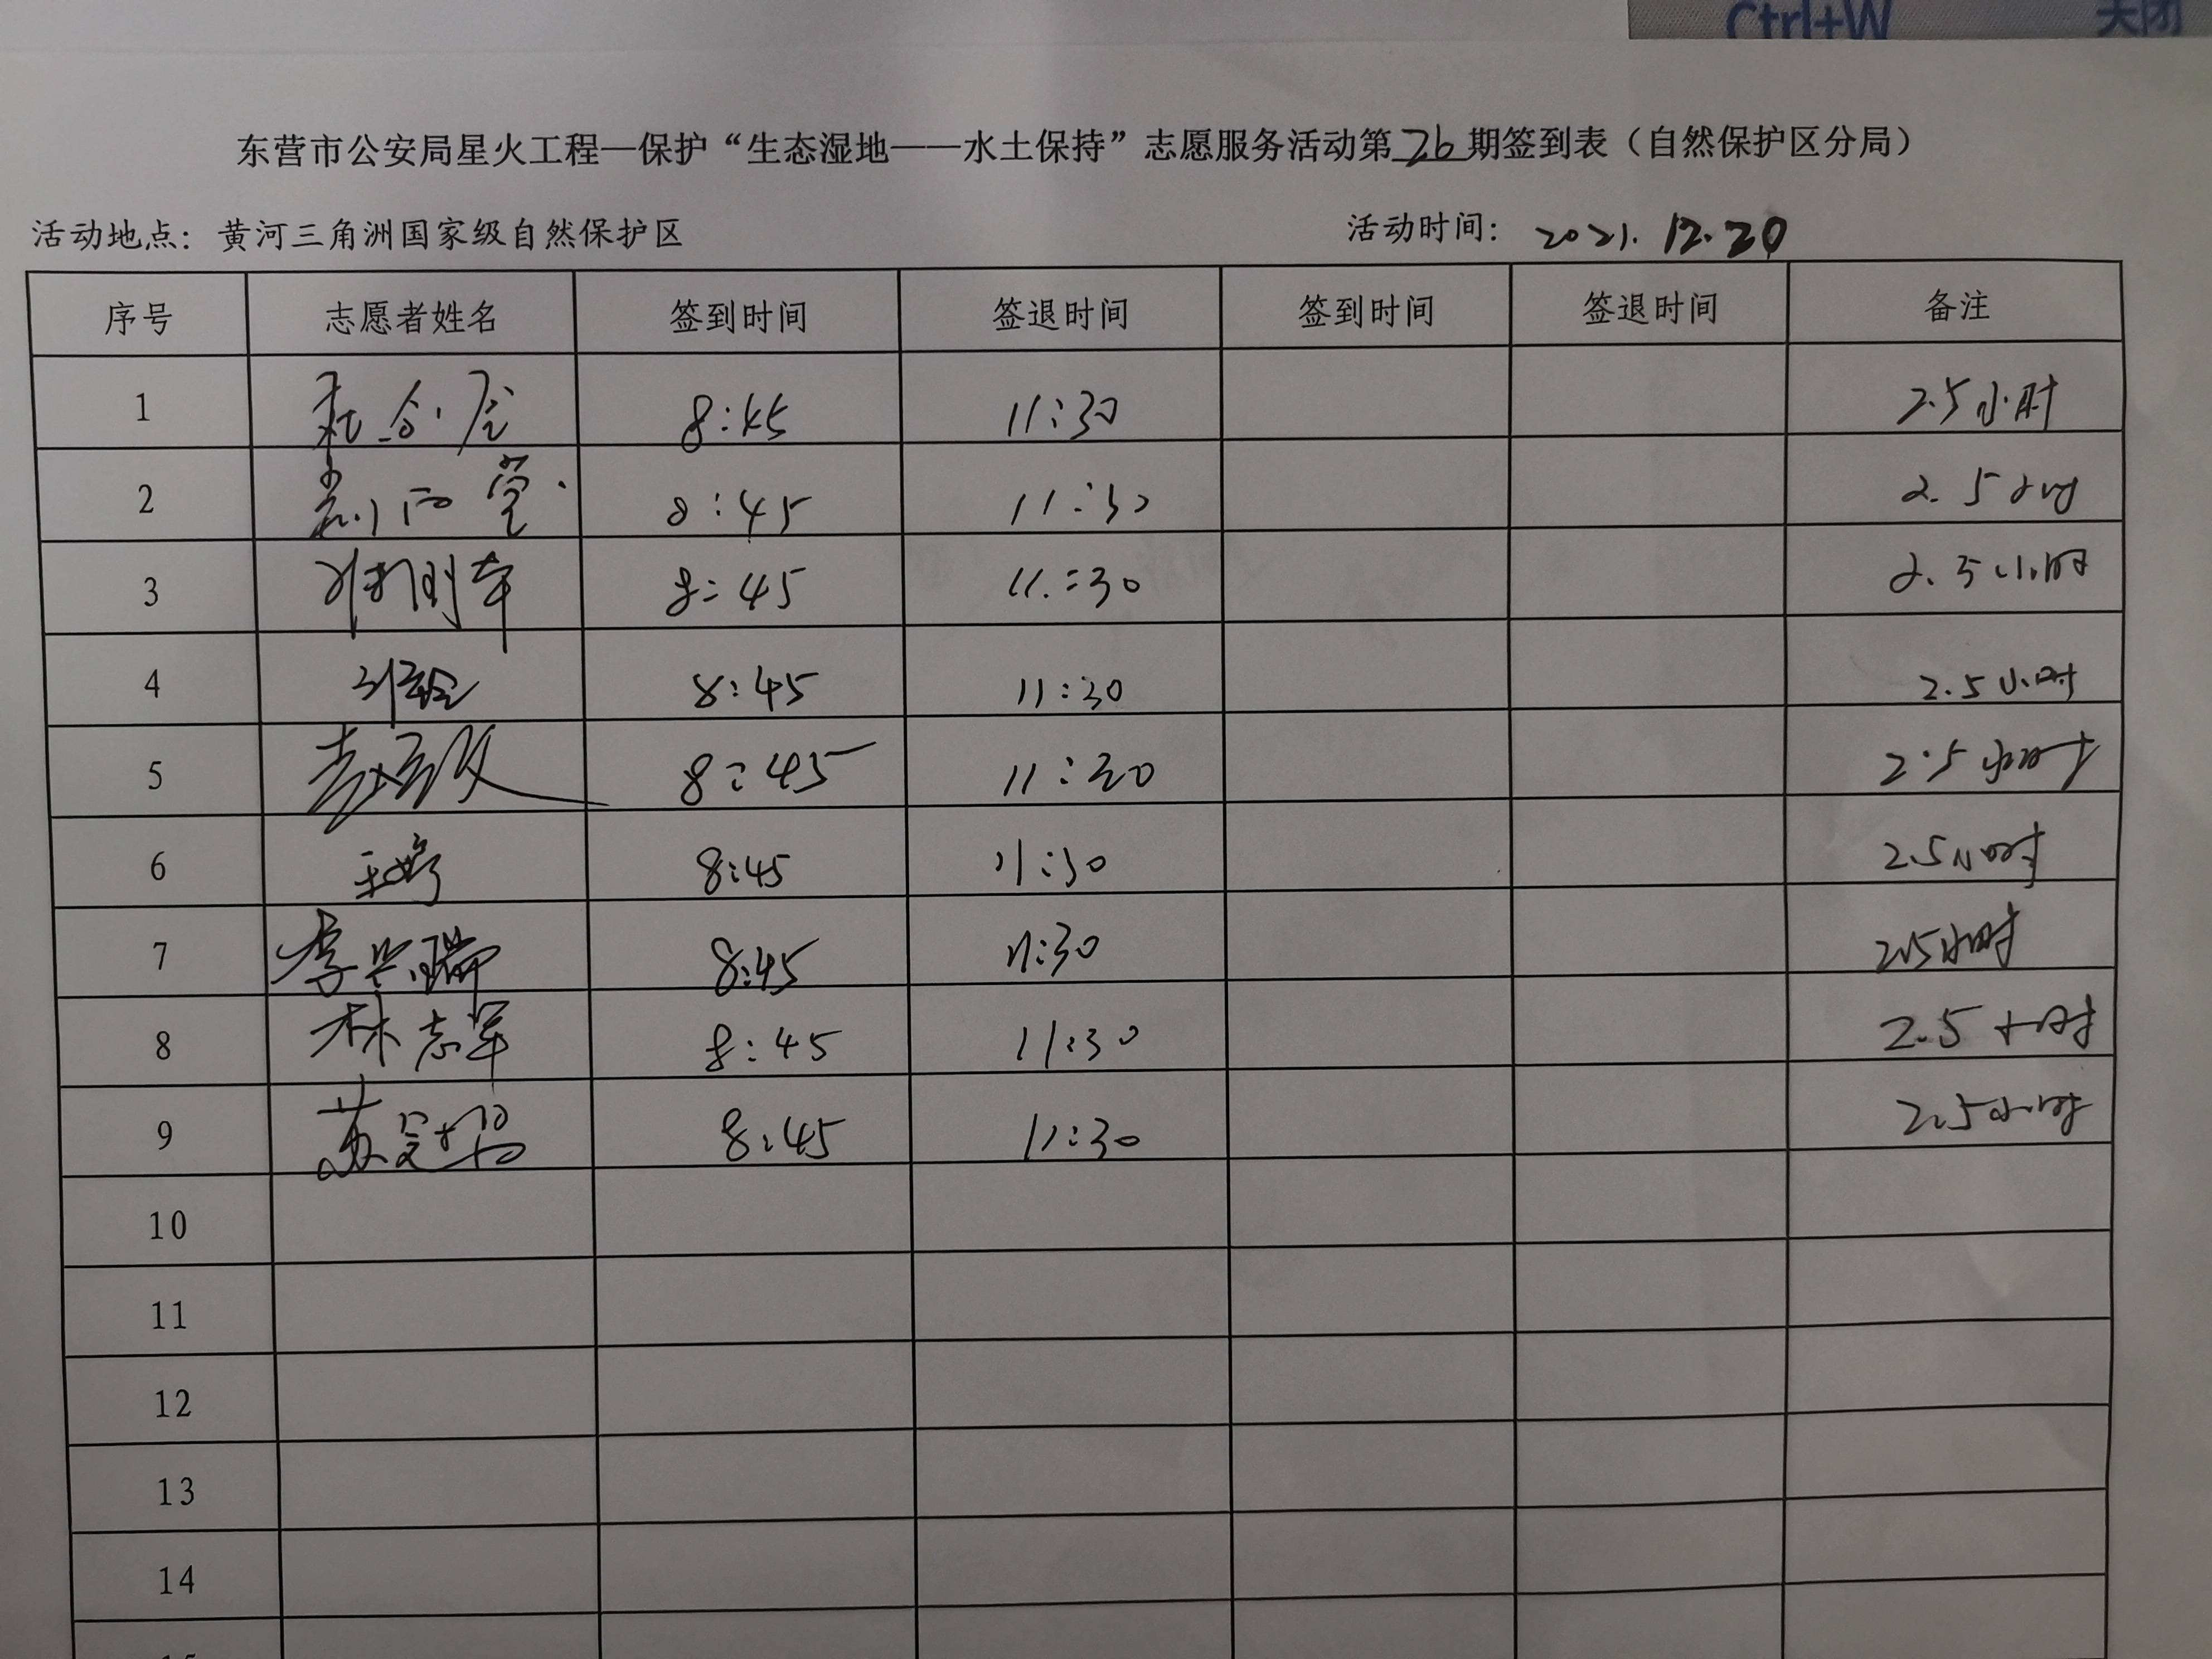 Ctrl+W 关闭
东营市公安局星火工程—保护“生态湿地——水土保持”志愿服务活动第26期签到表（自然保护区分局）
活动地点：黄河三角洲国家级自然保护区 活动时间：2021.12.20
序号 志愿者姓名 签到时间 签退时间 签到时间 签退时间 备注
1 8:45 11:30 2.5小时
2 8:45 11:30 2.5小时
3 8:45 11:30 2.5小时
4 8:45 11:30 2.5小时
5 8:45 11:30 2.5小时
6 8:45 11:30 2.5小时
7 李兴瑞 8:45 11:30 2.5小时
8 林志军 8:45 11:30 2.5小时
9 8:45 11:30 2.5小时
10
11
12
13
14